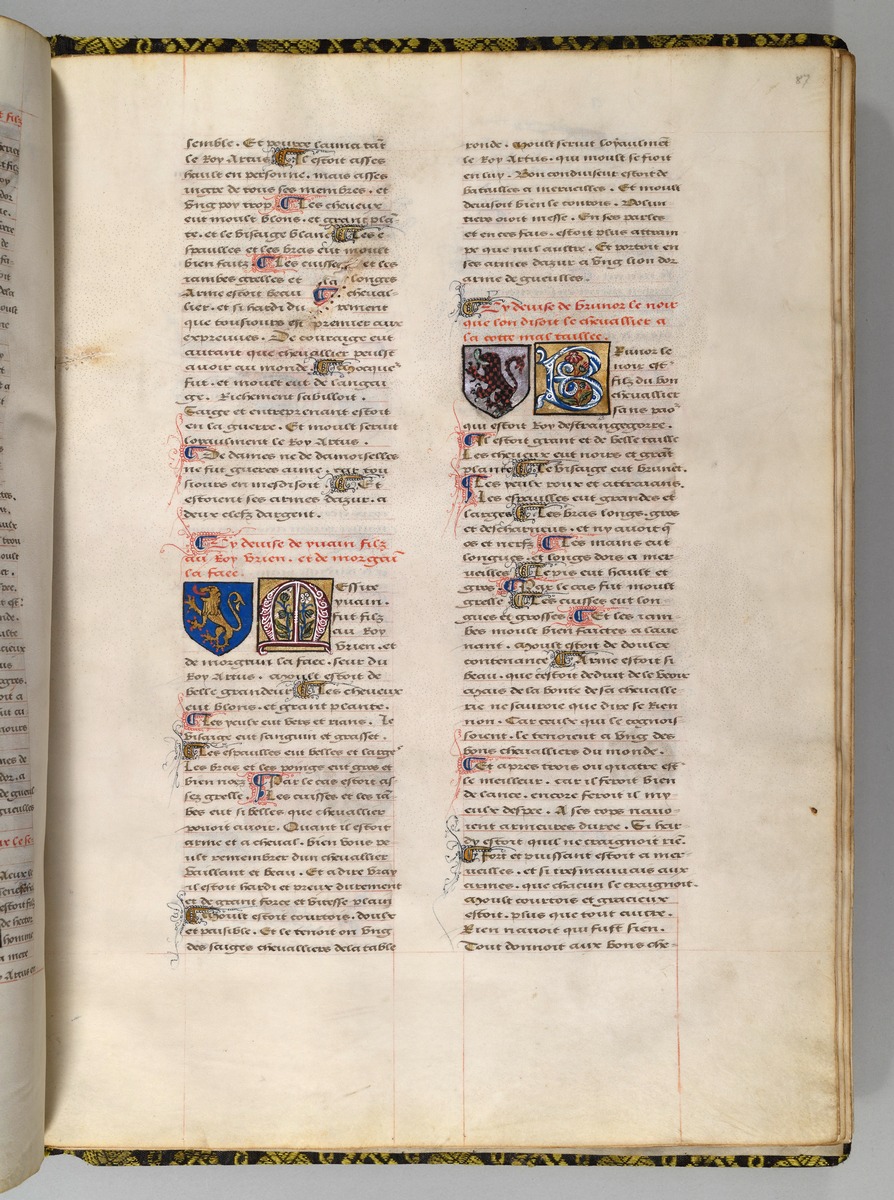 87
semble. Et pource lauma tãt
le Roy Artus Il estoit asses
hault en personne. mais asses
maigre de tous ses membres. et
Vng poy trop. Les cheueux
eut moult blons. et grant plã-
te. et le visaige blanc Les e
spaulles et les bras eut moult
bien faitz. Les cuisses et les
iambes grelles et la longes
Arme estoit beau cheual-
lier. et si hardi du rement
que tousiours est premier aux
espreuues. De couraige eut
autant que cheuallier peulst
auoir au monde. Mocque
fut. et mouet eut de langai
ge. Richement sabilloit.
Saige et entreprenant estoit
en la guerre. Et moult seruit
loyaulment le Roy Artus.
De dames ne de damoiselles
ne fut gueres aime. car tou
siours en mesdisoit. Et
estoient ses armes dazur. a
deux clefz dargent.
Cy deuise de yuain filz
au Roy Vrien. et de morgaĩ
la faee.
Messire
yuain.
fut filz
au Roy
Vrien. et
de morgain la faee. seur du
Roy Artus. Moult estoit de
belle grandeur Les cheueux
eut blons. et grant plante.
Les yeulx eut vers et rians. Le
visaige eut sanguin et grasset.
Les espaulles eut belles et large
Les bras et les poings eut gros et
bien noez Par le cas estoit as
sez grelle. Les cuisses et les iã
bes eut si belles que cheuallier
pouoit auoir. Quant il estoit
arme et a cheual. bien vous pe
ust remembrer dun cheuallier
Vaillant et beau. Et a dire Vray
il estoit hardi et preux durement
et de grant force et vitesse plain
Moult estoit courtois. doulx
et paisible. Et le tenoit on Vng
des saiges cheualliers dela table
ronde. Moult seruit loyaulmẽt
le Roy Artus. qui moult se fioit
en luy. Bon conduiseur estoit de
batailles a merueilles. Et moult
deuisoit bien le contois. Volun
tiers ouoit messe. En ses parles
et en ces fais. estoit plus attram
pe que nul aultre. Et portoit en
ses armes dazur a Vng lion dor
arme de gueulles.
Cy deuise de brunor le noir
que lon disoit le cheuallier a
la cotte mal taillee.
Brunor le
noir est
filz du bon
cheuallier
sans pao
qui estoit Roy destrangegorre.
Il estoit grant et de belle taille
Les cheueux eut noirs et grãt
plante Le visaige eut brunet.
Les yeulx roux et attraians.
Les espaulles eut grandes et
larges Les bras longs. gros
et descharneus. et ny auoit q̃
os et nerfz Les mains eut
longues. et longs dois a mer
ueilles Le pis eut hault et
gros Par le cas fut moult
grelle Les cuisses eut lon
gues et grosses. Et les iam-
bes moult bien faictes a laue
nant. Moult estoit de doulce
contenance Arme estoit si
beau. que cestoit deduit de le veoir
Mais de la bonte de sa cheualle
rie ne sauroie que dire se Bien
non. Car ceulx qui le cognois
soient. le tenoient a Vng des
bons cheualliers du monde.
Et apres trois ou quatre est
le meilleur. car il feroit bien
de lance. encore feroit il my
eulx despee. A ses cops nauo-
ient armeures duree. Si har
dy estoit quil ne craignoit riẽ.
Fort et puissant estoit a mer-
ueilles. et si tresmauuais aux
armes. que chacun le craignoit.
Moult courtois et gracieux
estoit. plus que tout aultre.
Rien nauoit qui fust sien.
Tout donnoit aux bons che-